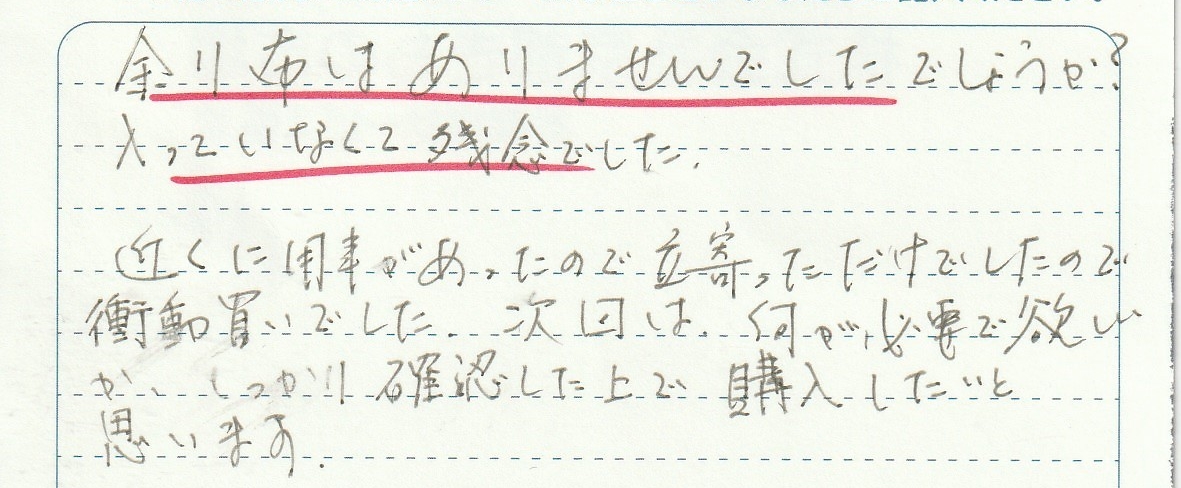 余り布はありませんでしたでしょうか?
入っていなくて残念でした.
近くに用事があったので立寄っただけでしたので
衝動買いでした. 次回は、何が必要で欲しい
か、しっかり確認した上で 購入したいと
思います.